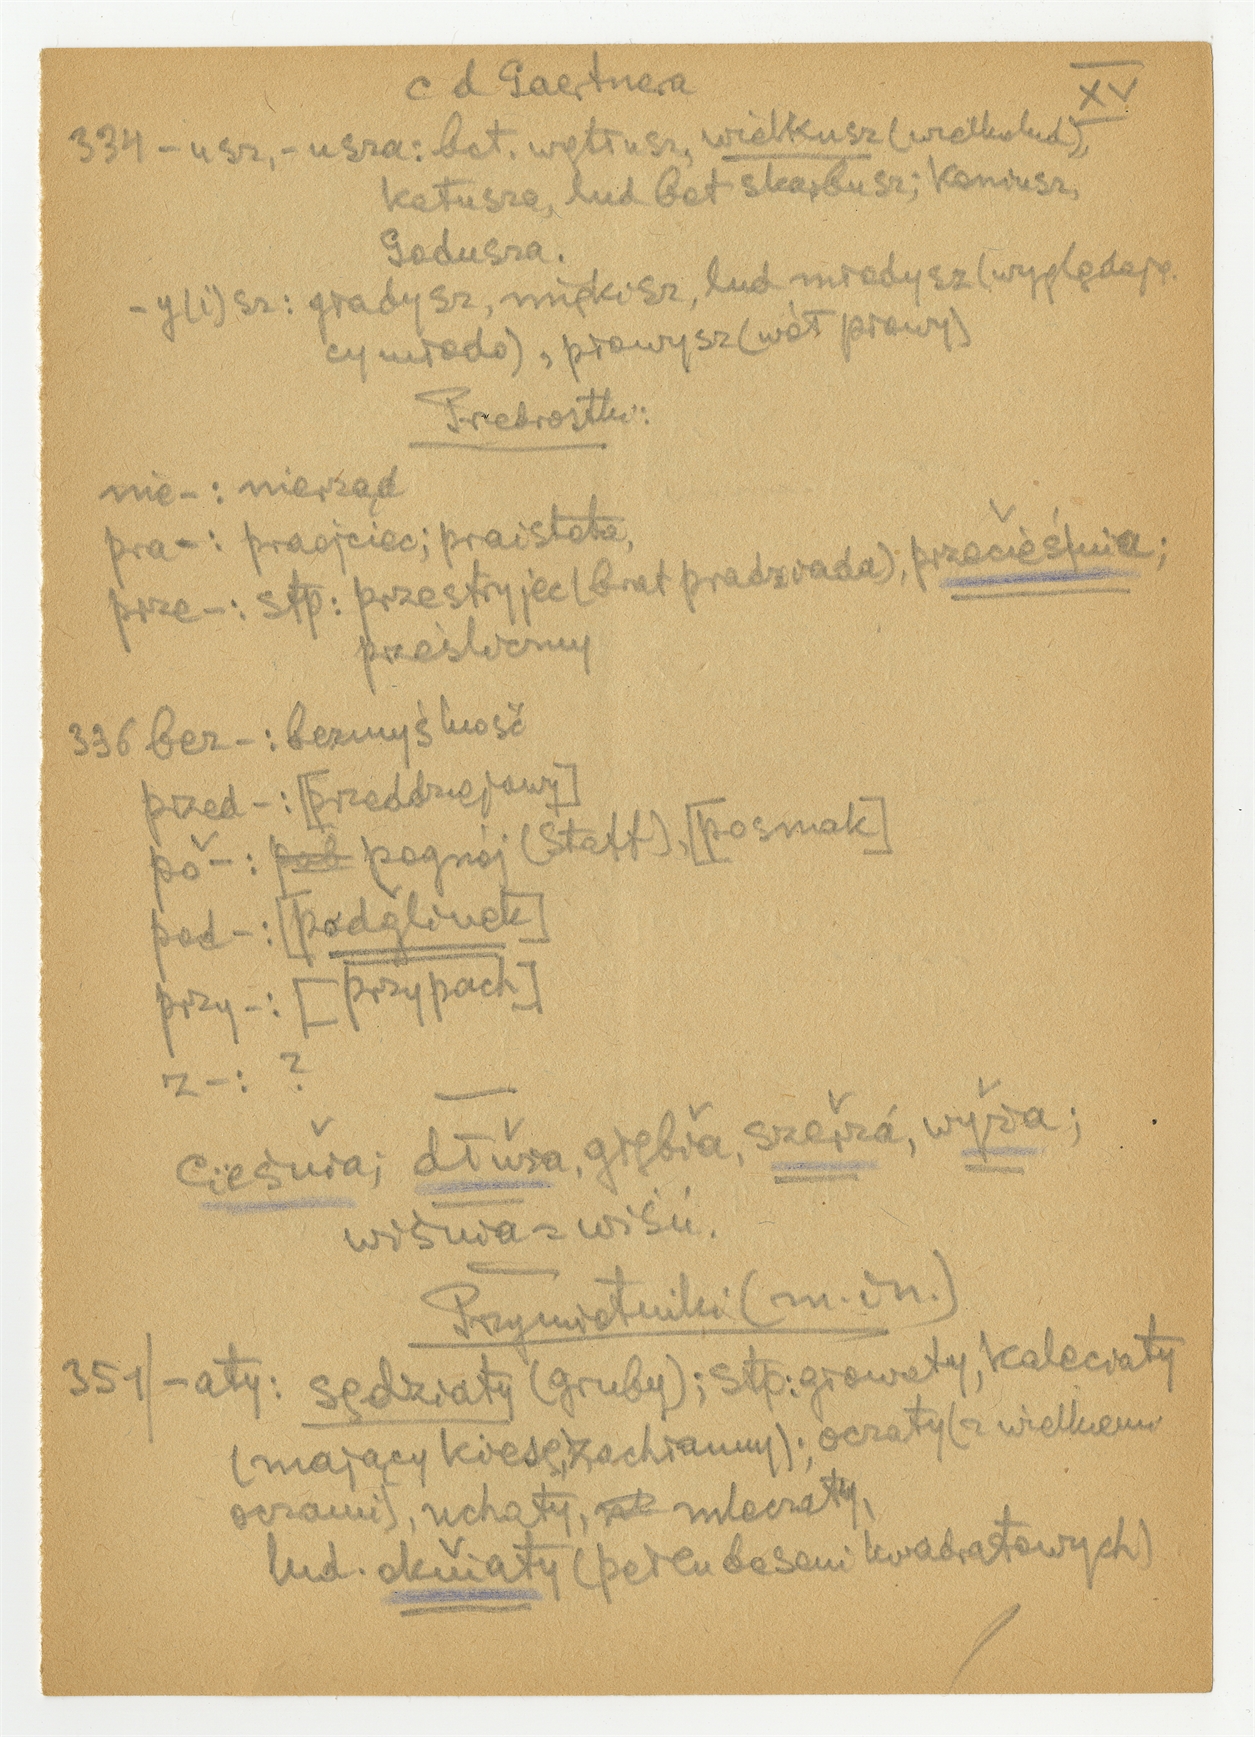 c d Gaertnera
XV
334 – usz, – usza: bot. wętłusz, wielkusz (wielkolud),
katusza, lud bot skarbusz; Koniusz,
Godusza.
– y(i)sz: gładysz, miękisz, lud młodysz (wyglądają-
cy młodo), prawysz (wół prawy)
Przedrostki:
nie–: nierząd
pra–: praojciec; praistota,
prze–: stp: przestryjec (brat pradziada), przecieśnia;
prześliczny
336 bez–: bezmyślność
przed–: [przeddziejowy]
po–: pognój (Staff), [posmak]
pod–: [podglinek]
przy–: [przypach]
z–: ?
cieśnia; dłuża, głębia, szerzá, wyża;
wiśnia = wiśń.
Przymiotniki (m. in.)
351/ –aty: sędziaty (gruby); stp: głowaty, kaleciaty
(mający kiesę, zachłanny); oczaty (z wielkiemi
oczami), uchaty, mleczaty,
lud. okniaty (w deseni kwadratowych)